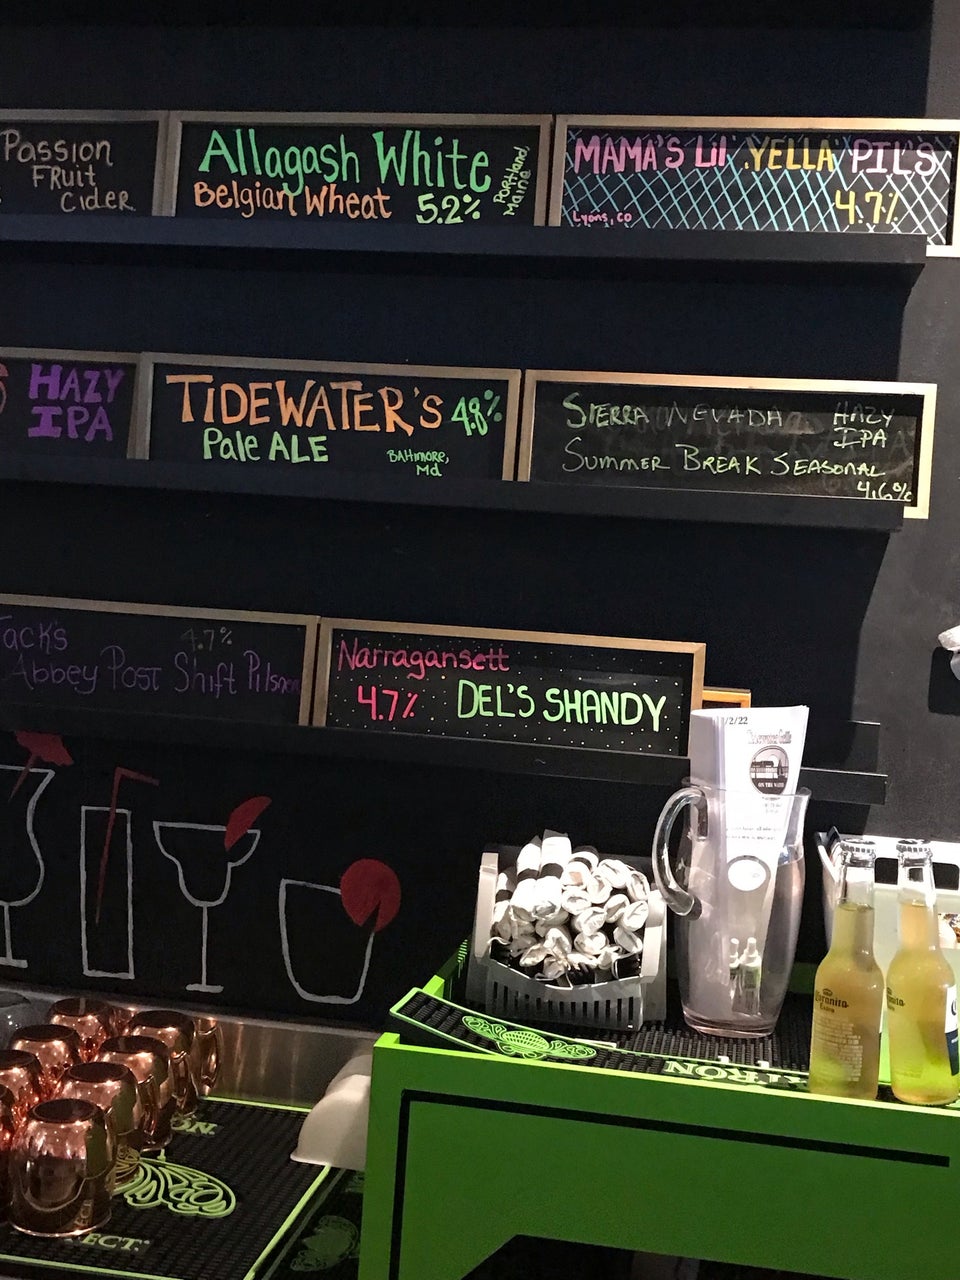 Passion
Fruit
Cider
Allagash White
Belgian Wheat 5.2%
Portland, Maine
MAMA'S Lil YELLA PILS
4.7%
Lyons, CO
HAZY
IPA
TIDEWATER'S 4.8%
Pale ALE
BAltimore,
Md
SIERRA NEVADA HAZY
IPA
SUMMER BREAK SEASONAL
4.6%
Jack's 4.7%
Abbey Post Shift Pilsner
Narragansett
4.7% DEL'S SHANDY
/2/22
ON THE WATER
Coronita
TRÓN
ECT.